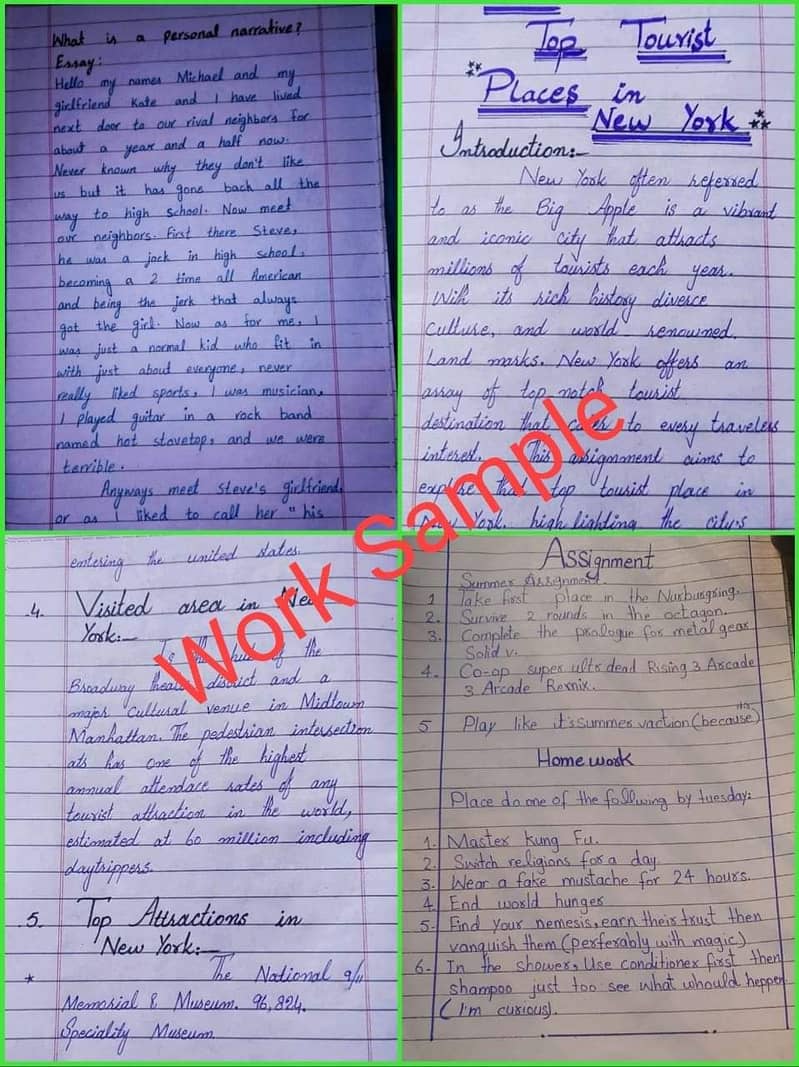 What is a personal narrative?
Essay:
Hello my names Michael and my
girlfriend Kate and I have lived
next door to our rival neighbors for
about a year and a half now.
Never known why they don't like
us but it has gone back all the
way to high school. Now meet
our neighbors. First there Steve,
he was a jock in high school,
becoming a 2 time all American
and being the jerk that always
got the girl. Now as for me, I
was just a normal kid who fit in
with just about everyone, never
really liked sports, I was musician,
I played guitar in a rock band
named hot stovetop, and we were
terrible.
Anyways meet Steve's girlfriend,
or as I liked to call her "his
Top Tourist
Places in
New York
Introduction:-
New York often referred
to as the Big Apple is a vibrant
and iconic city that attracts
millions of tourists each year.
With its rich history diverce
culture, and world renowned.
Land marks. New York offers an
array of top notch tourist
destination that cater to every travelers
interest. This assignment aims to
explore that top tourist place in
New York. high lighting the city's
entering the united states.
4. Visited area in New
York:-
Is the hub of the
Broadway theater district and a
major cultural venue in Midtown
Manhattan. The pedestrian intersection
ats has one of the highest
annual attendace rates of any
tourist attraction in the world,
estimated at 60 million including
daytrippers.
5. Top Attractions in
New York:-
* The National 9/11
Memorial & Museum. 96,824.
Speciality Museum
Assignment
Summer Assignment.
1 Take first place in the Nurburgring.
2. Survive 2 rounds in the octagon.
3. Complete the prologue for metal gear
Solid v.
4. Co-op super ultr dead Rising 3 Arcade
3 Arcade Remix.
5 Play like it's summer vaction (because)
Home work
Place do one of the following by tuesday:
1. Master Kung Fu.
2. Switch religions for a day.
3. Wear a fake mustache for 24 hours.
4. End world hunger
5. Find your nemesis, earn their trust then
vanquish them (perferably with magic)
6. In the shower, Use conditioner first then
shampoo just too see what whould heppen
(I'm curious).
Work Sample